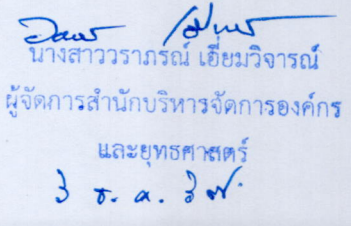 นางสาววราภรณ์ เอี่ยมวิจารณ์
ผู้จัดการสำนักบริหารจัดการองค์กร
และยุทธศาสตร์
ธ. ค.